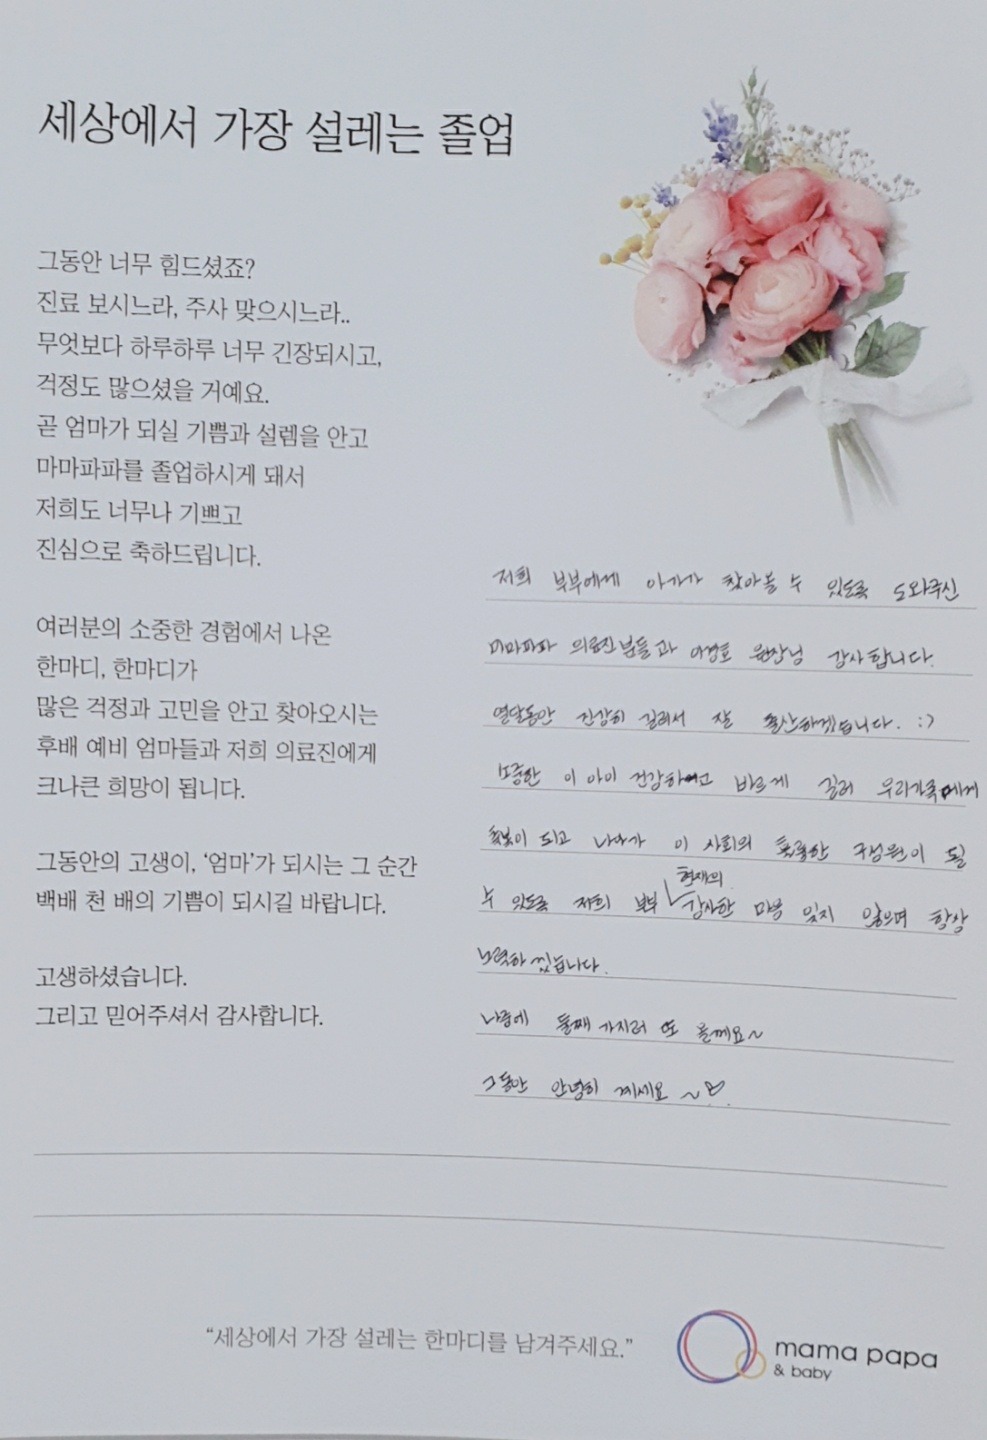 세상에서 가장 설레는 졸업
그동안 너무 힘드셨죠?
진료 보시느라, 주사 맞으시느라..
무엇보다 하루하루 너무 긴장되시고,
걱정도 많으셨을 거예요.
곧 엄마가 되실 기쁨과 설렘을 안고
마마파파를 졸업하시게 돼서
저희도 너무나 기쁘고
진심으로 축하드립니다.
여러분의 소중한 경험에서 나온
한마디, 한마디가
많은 걱정과 고민을 안고 찾아오시는
후배 예비 엄마들과 저희 의료진에게
크나큰 희망이 됩니다.
그동안의 고생이, ‘엄마’가 되시는 그 순간
백배 천 배의 기쁨이 되시길 바랍니다.
고생하셨습니다.
그리고 믿어주셔서 감사합니다.
저희 부부에게 아가가 찾아올 수 있도록 도와주신
마마파파 의료진분들과 원장님 감사합니다.
열달동안 건강히 길러서 잘 출산하겠습니다. :)
소중한 이 아이 건강하고 바르게 길러 우리가족에게
축복이 되고 나아가 이 사회의 훌륭한 구성원이 될
수 있도록 저희 부부 현재의 감사한 마음 잊지 않으며 항상
노력하겠습니다.
나중에 둘째 가지러 또 올께요~
그동안 안녕히 계세요~♡
“세상에서 가장 설레는 한마디를 남겨주세요.”
mama papa
& baby